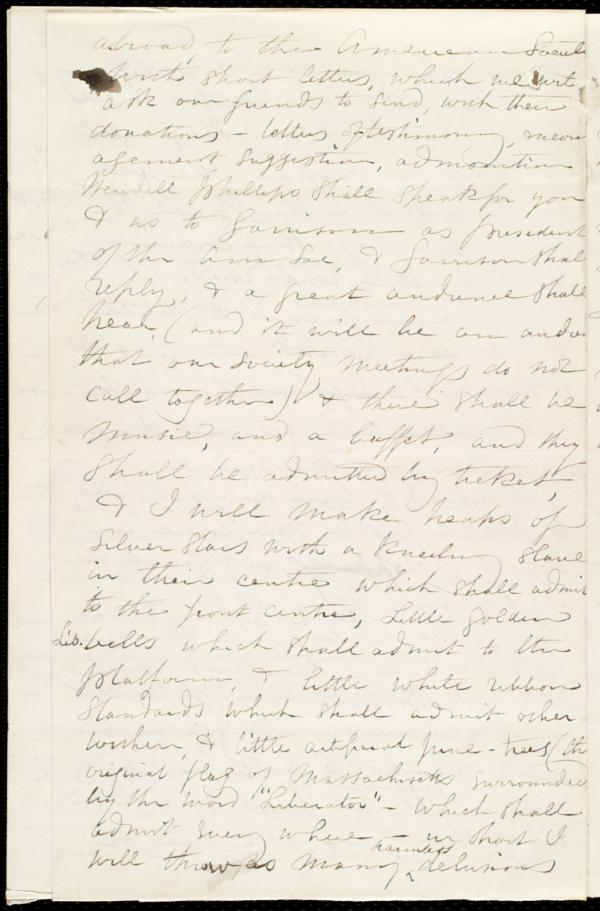 abroad, to the American Societ
with short letters, which we wil
ask our friends to send, with their
donations - letters of testimony, encou
agement, suggestion, admonition
Wendell Phillips shall speak for you
& us to Garrison as president
of the Am Soc, & Garrison shall
reply, & a great audience shall
hear, (and it will be an audie
that our society meetings do not
call together) & there shall be
music, and a buffet, and they
shall be admitted by ticket,
& I will make heaps of
silver stars with a kneeling slave
in their centre which shall admit
to the front centre, little golden
Lib. bells which shall admit to the
platform, & little white ribbon
standards which shall admit other
where, & little artificial pine-trees (the
original flag of Massachusetts surrounded
by the word "Liberator" - which shall
admit every where - in short I
will throw as many harmless delusions